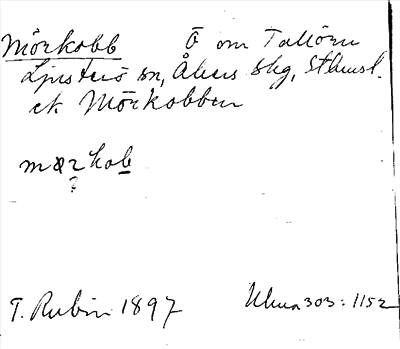 Mörkobb Ö om Tallören
Ljusterö sn, Åkers skg, Sthmsl.
ek Mörkobben
mœrkob
?
T. Rubin 1897 303:1152